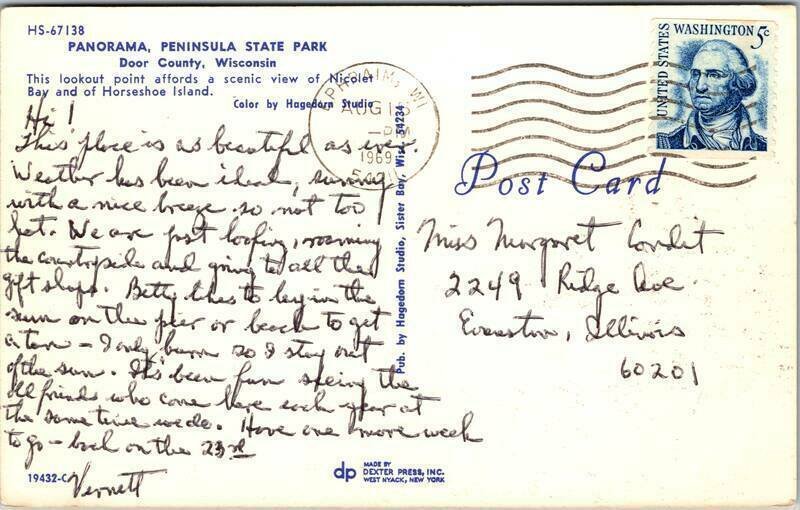 HS-67138
PANORAMA, PENINSULA STATE PARK
Door County, Wisconsin
This lookout point affords a scenic view of Nicolet
Bay and of Horseshoe Island.
Color by Hagedorn Studio
Hi!
This place is as beautiful as ever.
Weather has been ideal, sunny
with a nice breeze so not too
hot. We are just loafing, roaming
the countryside and going to all the
gift shops. Betty likes to lay in the
sun on the pier or beach to get
a tan - I only burn so I stay out
of the sun. It's been fun seeing the
old friends who come here each year at
the same time we do. Have one more week
to go - back on the 23rd
Vernett
19432-C
Pub. by Hagedorn Studio, Sister Bay, Wisc. 54234
dp
MADE BY
DEXTER PRESS, INC.
WEST NYACK, NEW YORK
EPHRAIM, WI
AUG 13
PM
1969
UNITED STATES
WASHINGTON 5c
Post Card
Miss Margaret Condit
2249 Ridge Ave
Evanston, Illinois
60201